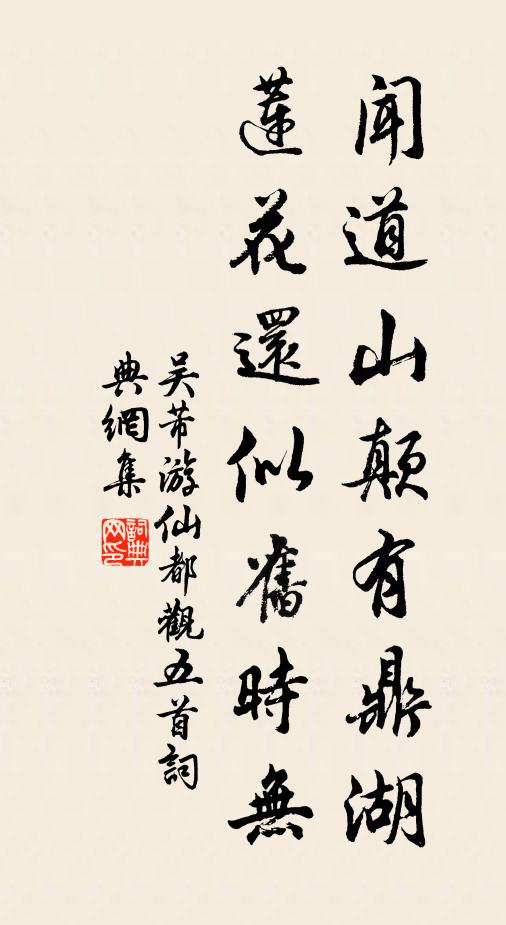 聞道山顛有鼎湖
蓮花還似舊時無
吴芾游仙都觀五首詞
典網集
詞典網印